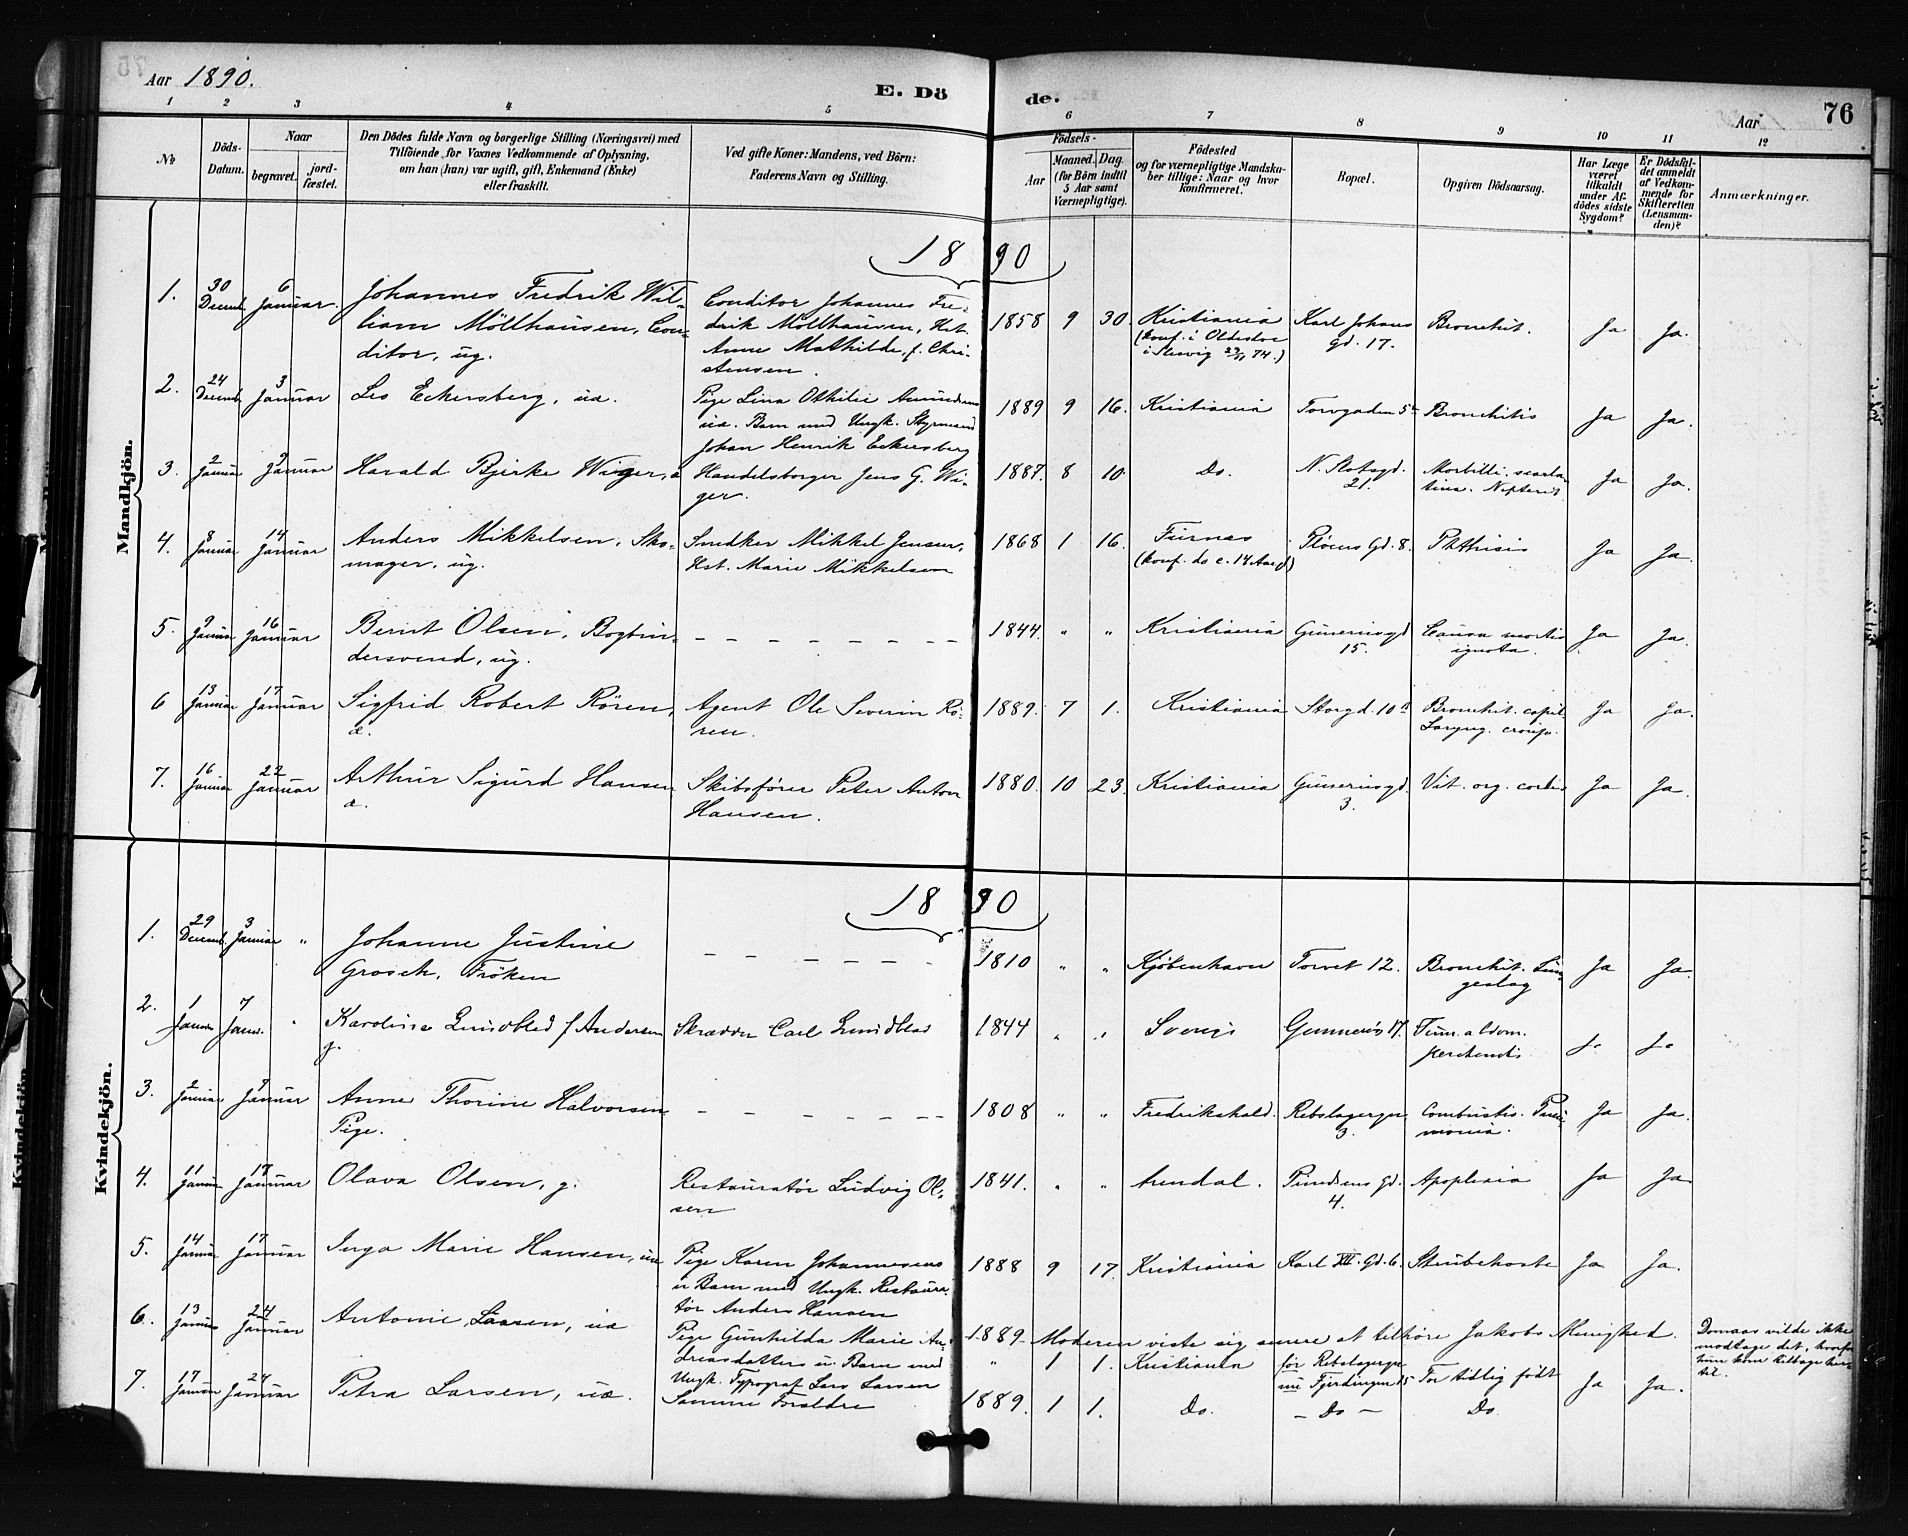 Aar 1890.
E. Döde.
76
Aar
1 2 3 4 5 6 7 8 9 10 11 12
No
Döds-
Datum.
Naar
begravet.
jord-
fæstet.
Den Dödes fulde Navn og borgerlige Stilling (Næringsvei) med
Tilföiende for Voxnes Vedkommende af Oplysning,
om han (hun) var ugift, gift, Enkemand (Enke)
eller fraskilt.
Ved gifte Koner: Mandens, ved Börn:
Faderens Navn og Stilling.
Födsels-
Aar
Maaned. Dag.
(for Börn indtil
5 Aar samt
Værnepligtige).
Födested
og for værnepligtige Mandska-
ber tillige: Naar og hvor
konfirmeret.
Bopæl.
Opgiven Dödsaarsag.
Har Læge
været
tilkaldt
under Af-
dödes sidste
Sygdom?
Er Dödsfal-
det anmeldt
af Vedkom-
mende for
Skifteretten
(Lensman-
den)?
Anmærkninger.
Mandkjön.
1890
1. 30 Decemb. 6 Januar. Johannes Fredrik Wil-
liam Möllhausen, Con-
ditor, ug.
Conditor Johannes Fre-
drik Möllhausen, Hst.
Anne Mathilde, f. Chri-
stensen.
1858 9 30. Kristiania
(konf. i Oldesloe
i Slesvig 74.)
Karl Johans
gd. 17.
Bronchit. Ja Ja.
2. 24 Decemb. 3 Januar Leo Eckersberg, uæ.
Pige Lina Othilie
uæ. Barn med Ungk. Styrmand
Johan Henrik Eckersberg
1889 9 16. Kristiania Torvgaden 5 Bronchitis Ja Ja.
3. 2 Januar 9 Januar Harald Bjerke Wiger, æ
Handelsborger Jens G. Wi-
ger.
1887. 8 10 Do. N. Slotsgd.
21.
Morbilli. scarla-
tina. Ja Ja.
4. 8 Januar 14 Januar Anders Mikkelsen, Sko-
mager, ug.
Snedker Mikkel Jensen,
Hst. Marie Mikkelsen
1868 1 16. Furnæs
(konf. do c. 14 Aar )
Pløens Gd. 8. Phthisis Ja Ja.
5. 9 Januar 16 Januar Bernt Olsen, Bogbin-
dersvend, ug.
– – – – – – – –
1844. " " Kristiania Gunerusgd
15.
Causa mortis
ignota. Ja Ja.
6 13 Januar 17 Januar Sigfrid Robert Røren,
æ.
Agent Ole Severin Rø-
ren.
1889. 7 1. Kristiania Storgd. 10 Bronchit. capil.
Laryng. croup. Ja Ja.
7. 16 Januar 22 Januar Arthur Sigurd Hansen
æ.
Skibsfører Peter Anton
Hansen.
1880. 10 23. Kristiania Gunerusgd.
3.
Vit. org. cordis Ja Ja.
Kvindekjön.
1890
1. 29 Decemb. 3 Januar " Johanne Justine
Grosch, Frøken
– – – – – –
1810 " " Kjøbenhavn Torvet 12. Bronchit.
Ja Ja.
2. 1 Januar 7 Januar " Karolina Lundblad f Andersen
g.
Skrædder Carl Lundblad
1844 " " Sverig Gunnerus 17. Tum. abdom.
Ja Ja
3. 2 Januar 7 Januar Anne Thorine Halvorsen
Pige.
– – – – – – –
1808 " " Fredrikshald. Rebslagergn.
3.
Combustio. Pneu-
monia. Ja Ja.
4. 11 Januar 17 Januar Olava Olsen, g.
Restauratør Ludvig Ol-
sen
1841. " " Arendal. Gd.
4.
Apoplexia Ja Ja
5. 14 Januar 17 Januar Inga Marie Hansen, uæ
Pige Karen Johannesens
u Barn med Ungk. Restaura-
tør Anders Hansen
1888 9 17. Kristiania Karl XII. Gd. 6. Strubehoste Ja Ja.
6. 13 Januar 24 Januar Antonie Larsen, uæ
Pige Gunhilda Marie An-
dreasdatters u. Barn med
Ungk. Typograf Lars Larsen
1889 – Moderen viste sig senere at tilhøre Jakobs Menighed.
" 1 1. Kristiania før Rebslagergn
nu Fjerdingen 15 For tidlig født Ja Ja.
Domaas vilde ikke
modtage det, hvorfor
hun kom tilbage her-
til.
7. 17 Januar 24 Januar Petra Larsen, uæ.
Samme Forældre
1889. 1 1. Do. – Do – Do